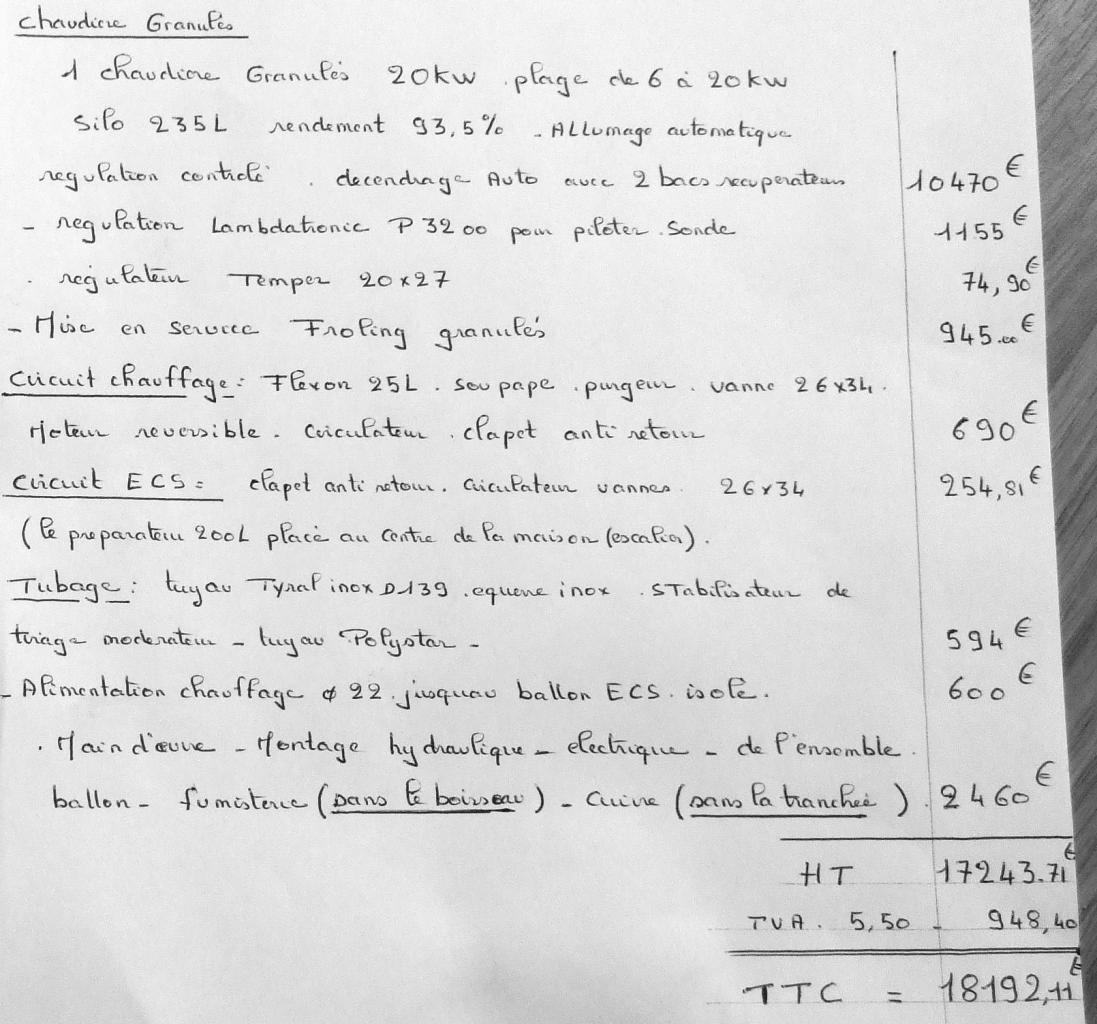 Chaudiere Granulés
1 chaudiere Granulés 20kw . plage de 6 à 20kw
Silo 235L rendement 93,5% - ALLumage automatique
regulation controlé . decendrage Auto avec 2 bacs recuperateurs 10470€
- regulation Lambdatronic P 3200 pour piloter . Sonde 1155€
. régulateur Temper 20x27 74,90€
- Mise en service Froling granulés 945.00€
Circuit chauffage : Flexon 25L . soupape . purgeur . vanne 26x34 .
Moteur reversible . circulateur . clapet anti retour 690€
Circuit ECS = clapet anti retour . circulateur vannes . 26x34 254,81€
(le preparateur 200L placé au centre de la maison (escalier) .
Tubage : tuyau Tynal inox D139 . equerre inox . STabilisateur de
tirage moderateur - tuyau Polystar - 594€
- Alimentation chauffage ø 22 . jusquau ballon ECS . isolé . 600€
. Main d'œuvre - Montage hydraulique - electrique - de l'ensemble .
ballon - fumisterie (sans le boisseau) - cuivre (sans la tranchée) . 2460€
HT 17243.71€
TVA . 5,50 - 948,40
TTC = 18192,11€